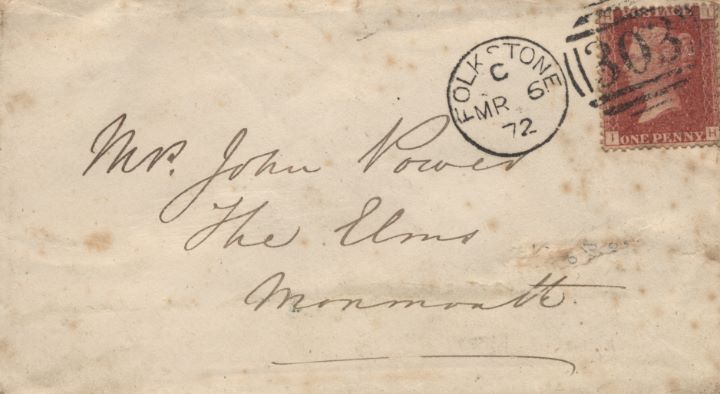 FOLKSTONE
C
MR 6
72
303
H I
I H
ONE PENNY
Mrs. John Power
The Elms
Monmouth